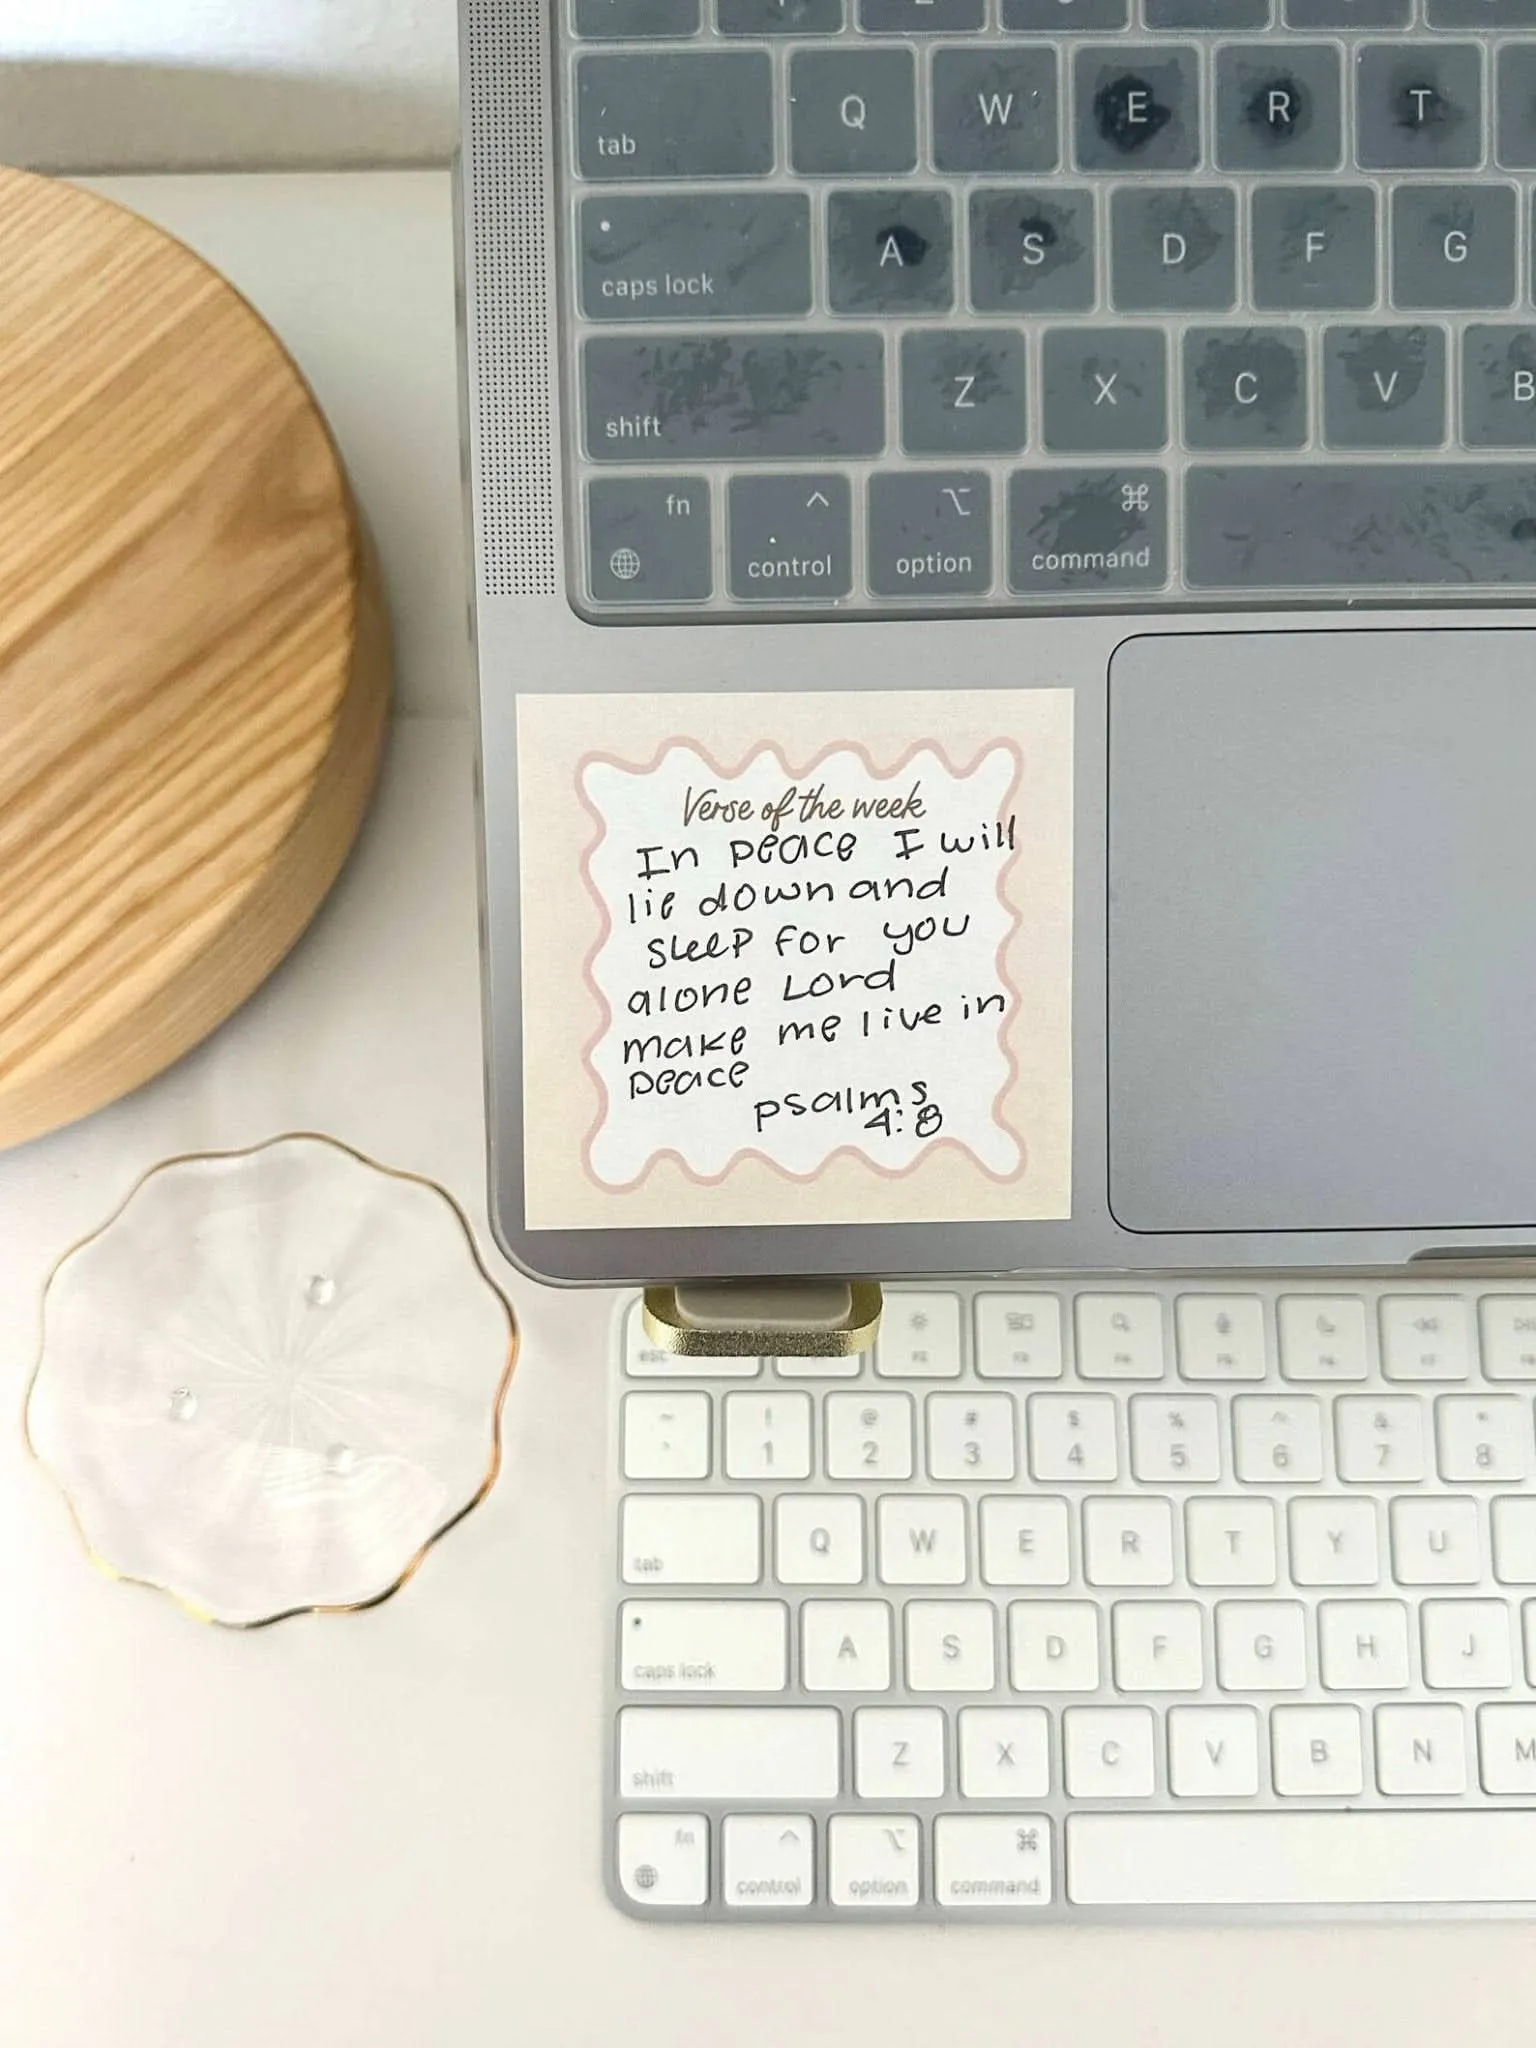 tab Q W E R T
caps lock A S D F G
shift Z X C V B
fn control option ⌘ command
Verse of the week
In peace I will
lie down and
sleep for you
alone Lord
make me live in
peace
psalms
4:8
esc
~ ` ! 1 @ 2 # 3 $ 4 % 5 ^ 6 & 7 * 8
tab Q W E R T Y U
caps lock A S D F G H J
shift Z X C V B N M
fn control option ⌘ command